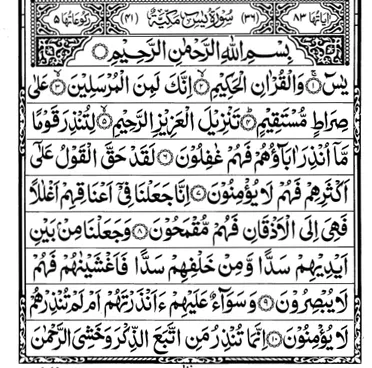 اٰيَاتُهَا ٨٣ (٣٦) سُوْرَةُ يٰسٓ مَكِّيَّةٌ (٤١) رُكُوْعَاتُهَا ٥
بِسْمِ اللّٰهِ الرَّحْمٰنِ الرَّحِيْمِ
يٰسٓ ۚ‏﴿١﴾ وَالْقُرْاٰنِ الْحَكِيْمِ ۙ‏﴿٢﴾ اِنَّكَ لَمِنَ الْمُرْسَلِيْنَ ۙ‏﴿٣﴾ عَلٰى
صِرَاطٍ مُّسْتَقِيْمٍ ؕ‏﴿٤﴾ تَنْزِيْلَ الْعَزِيْزِ الرَّحِيْمِ ۙ‏﴿٥﴾ لِتُنْذِرَ قَوْمًا
مَّاۤ اُنْذِرَ اٰبَآؤُهُمْ فَهُمْ غٰفِلُوْنَ ﴿٦﴾ لَقَدْ حَقَّ الْقَوْلُ عَلٰۤى
اَكْثَرِهِمْ فَهُمْ لَا يُؤْمِنُوْنَ ﴿٧﴾ اِنَّا جَعَلْنَا فِيْۤ اَعْنَاقِهِمْ اَغْلٰلًا
فَهِيَ اِلَى الْاَذْقَانِ فَهُمْ مُّقْمَحُوْنَ ﴿٨﴾ وَجَعَلْنَا مِنْۢ بَيْنِ
اَيْدِيْهِمْ سَدًّا وَّمِنْ خَلْفِهِمْ سَدًّا فَاَغْشَيْنٰهُمْ فَهُمْ
لَا يُبْصِرُوْنَ ﴿٩﴾ وَسَوَآءٌ عَلَيْهِمْ ءَاَنْذَرْتَهُمْ اَمْ لَمْ تُنْذِرْهُمْ
لَا يُؤْمِنُوْنَ ﴿١٠﴾ اِنَّمَا تُنْذِرُ مَنِ اتَّبَعَ الذِّكْرَ وَخَشِيَ الرَّحْمٰنَ